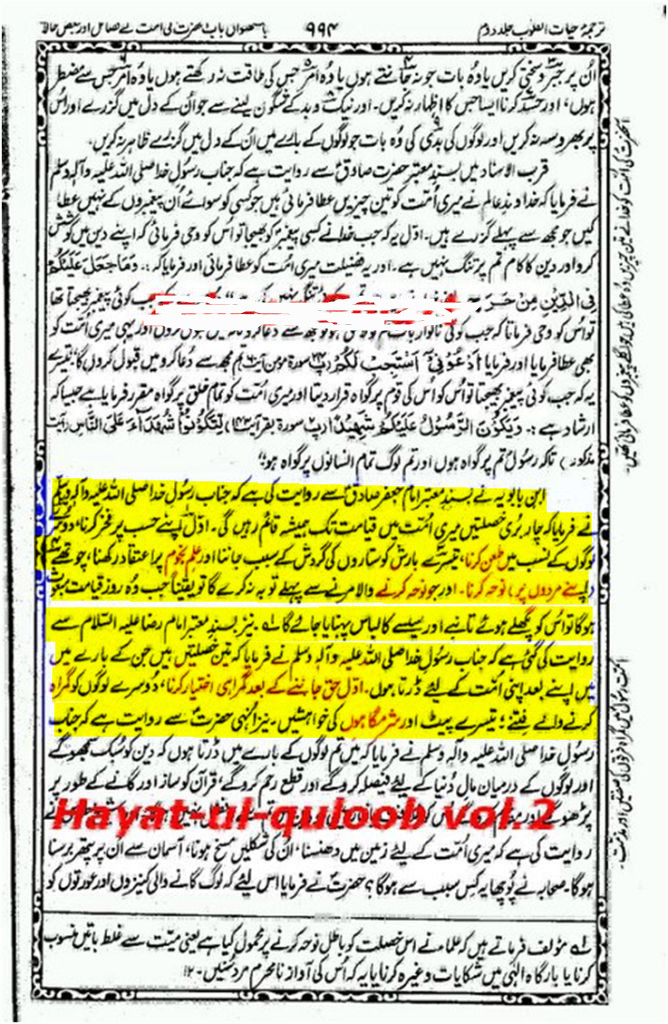 ترجمۂ حیات القلوب جلد دوم ۹۹۴ باسٹھواں باب حضرت کی امت کے فضائل اور بعض حالات
اُن پر جبر و سختی کریں یا وُہ بات جو نہ جانتے ہوں یا وُہ امر جس کی طاقت نہ رکھتے ہوں یا وُہ امر جس سے مضطر
ہوں، اور حسد کرنا ایسا جس کا اظہار نہ کریں۔ اور نیک و بد کے شگون لینے سے جو اُن کے دل میں گزرے اور اُس
پر بھروسہ نہ کریں اور لوگوں کی بدی کی وُہ بات جو لوگوں کے بارے میں اُن کے دل میں گزرے ظاہر نہ کریں۔
قرب الاسناد میں بسند معتبر حضرت صادقؑ سے روایت ہے کہ جناب رسُولِ خدا صلی اللہ علیہ وآلہٖ وسلم
نے فرمایا کہ خداوندِ عالم نے میری اُمّت کو تین چیزیں عطا فرمائی ہیں جو کسی کو سوائے اُن پیغمبروں کے نہیں عطا
کیں جو مجھ سے پہلے گزرے ہیں۔ اوّل یہ کہ جب خدا نے کسی پیغمبر کو بھیجا تو اُس کو وحی فرمائی کہ اپنے دین میں کوشش
کرو اور دین کا کام تم پر تنگ نہیں ہے۔ اور یہ فضیلت میری اُمّت کو عطا فرمائی اور فرمایا کہ :۔ وَمَا جَعَلَ عَلَيْكُمْ
فِي الدِّيْنِ مِنْ حَرَجٍ تنگی نہیں جب کوئی پیغمبر بھیجتا تھا
تو اُس کو وحی فرماتا کہ جب کوئی ناگوار بات تم کو مجھ سے دُعا کرو اور یہی میری اُمّت کو
بھی عطا فرمایا اور فرمایا اُدْعُوْنِيْ اَسْتَجِبْ لَكُمْ تم مجھ سے دُعا کرو میں قبول کروں گا؛ تیسرے
یہ کہ جب کوئی پیغمبر بھیجتا تو اُس کو اُس کی قوم پر گواہ قرار دیتا اور میری اُمّت کو تمام خلق پر گواہ مقرر فرمایا ہے جیسا کہ
ارشاد ہے :۔ وَيَكُوْنَ الرَّسُوْلُ عَلَيْكُمْ شَهِيْدًا لِتَكُوْنُوْا شُهَدَآءَ عَلَى النَّاسِ
مذکور تاکہ رسولؐ تم پر گواہ ہوں اور تم لوگ تمام انسانوں پر گواہ ہو؛
ابن بابویہ نے بسندِ معتبر امام جعفر صادقؑ سے روایت کی ہے کہ جناب رسُولِ خدا صلی اللہ علیہ وآلہٖ وسلم
نے فرمایا کہ چار بُری خصلتیں میری اُمّت میں قیامت تک ہمیشہ قائم رہیں گی۔ اوّل اپنے حسب پر فخر کرنا، دوسرے
لوگوں کے نسب میں طعن کرنا، تیسرے بارش کو ستاروں کی گردش کے سبب جاننا اور علم نجوم پر اعتقاد رکھنا، چوتھے
اپنے مردوں پر نوحہ کرنا۔ اور جو نوحہ کرنے والا مرنے سے پہلے توبہ نہ کرے گا تو یقیناً جب وُہ روزِ قیامت مبعوث
ہوگا تو اُس کو پگھلے ہوئے تانبے اور سیسے کا لباس پہنایا جائے گا لہ نیز بسندِ معتبر امام رضا علیہ السّلام سے
روایت کی گئی ہے کہ جناب رسولِ خدا صلی اللہ علیہ وآلہٖ وسلم نے فرمایا کہ تین خصلتیں ہیں جن کے بارے میں
میں اپنے بعد اپنی اُمّت کے لیئے ڈرتا ہوں۔ اوّل حق جاننے کے بعد گمراہی اختیار کرنا، دُوسرے لوگوں کو گمراہ
کرنے والے فتنے؛ تیسرے پیٹ اور شرمگاہوں کی خواہشیں۔ نیز اُنہی حضرتؑ سے روایت ہے کہ جناب
رسُولِ خدا صلی اللہ علیہ وآلہٖ وسلم نے فرمایا کہ میں تم لوگوں کے بارے میں ڈرتا ہوں کہ دین کو سُبک سمجھو گے
اور لوگوں کے درمیان مالِ دُنیا کے لیئے فیصلہ کرو گے اور قطع رحم کرو گے؛ قرآن کو ساز اور گانے کے طور پر
پڑھو گے
Hayat-ul-quloob vol.2
روایت کی ہے کہ میری اُمّت کے لیئے زمین میں دھنسنا، اُن کی شکلیں مسخ ہونا، آسمان سے اُن پر پتھر برسنا
ہوگا۔ صحابہ نے پُوچھا یہ کس سبب سے ہوگا؟ حضرتؐ نے فرمایا اس لئے کہ لوگ گانے والی کنیزوں اور عورتوں کو
لہ مؤلف فرماتے ہیں کہ علماء نے اس خصلت کو باطل نوحہ کرنے پر محمول کیا ہے یعنی میّت سے غلط باتیں منسوب
کرنا یا بارگاہِ الٰہی میں شکایات وغیرہ کرنا یا یہ کہ اُس کی آواز نامحرم مرد سُنیں۔ ۱۲
آنحضرتؐ کی اُمّت کو خدا نے تین چیزیں وُہ عطا کی ہیں جو اگلے پیغمبروں کو عطا فرمائی تھیں